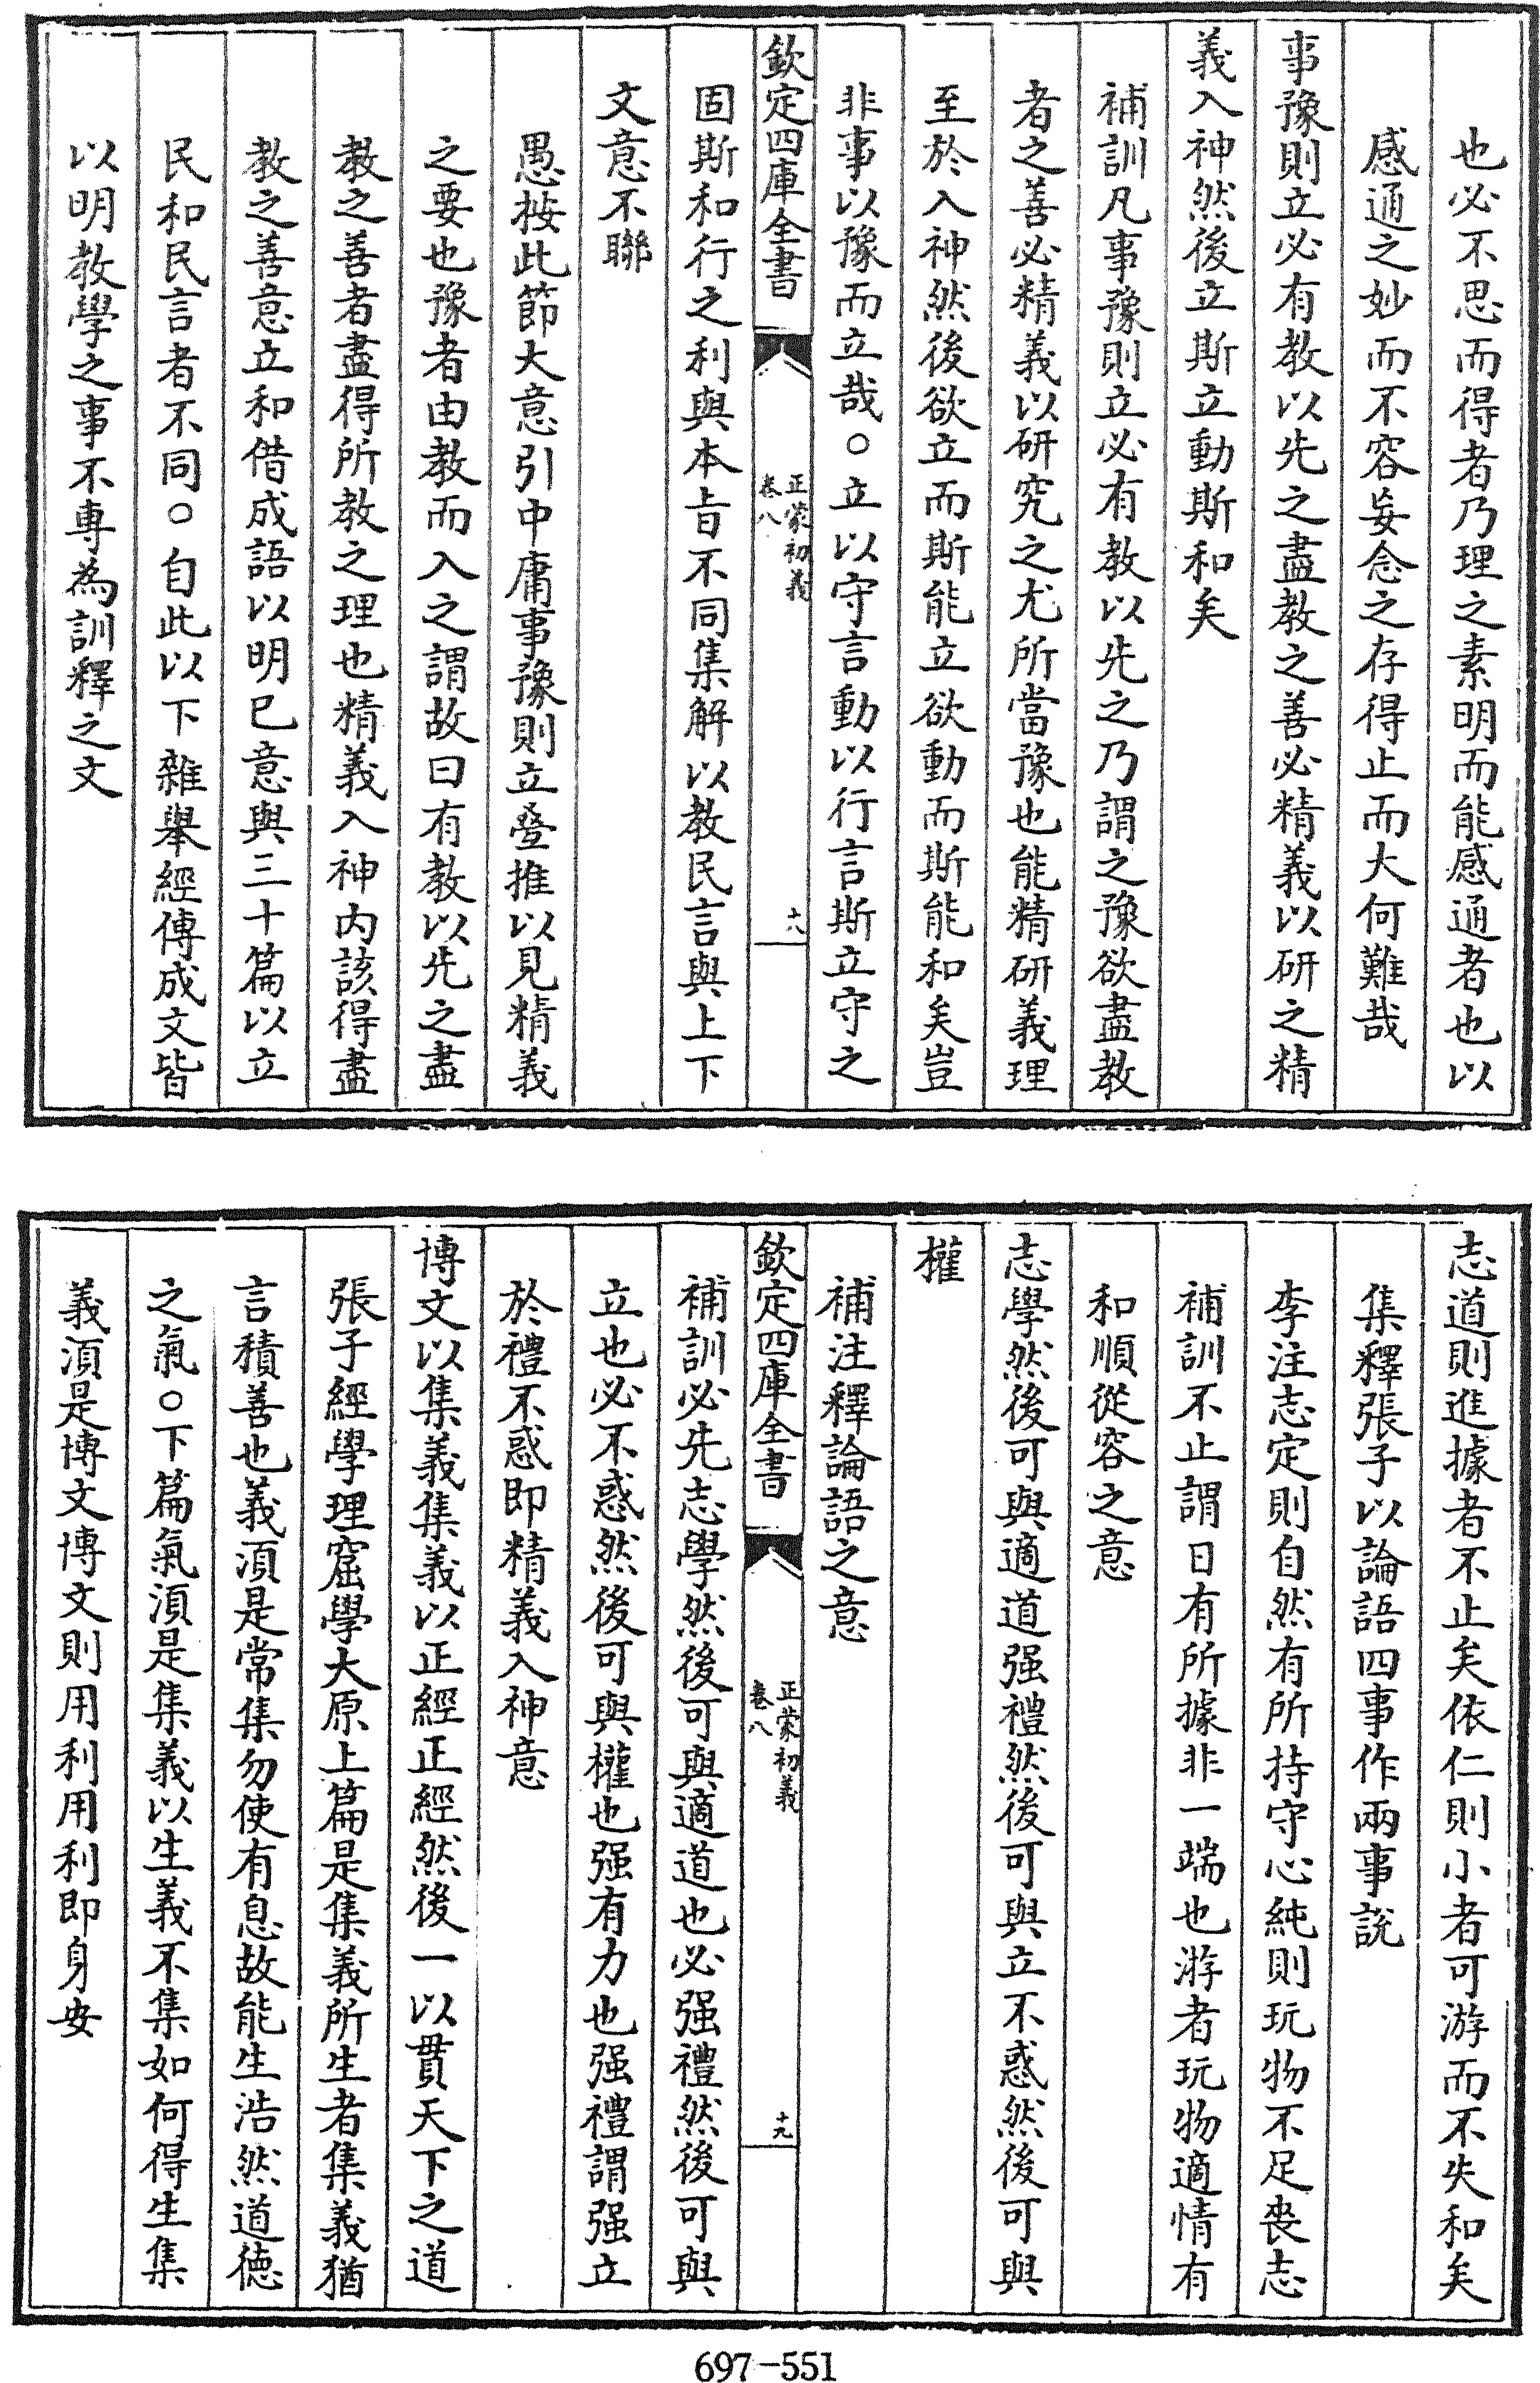 也必不思而得者乃理之素明而能感通者也以
感通之妙而不容妄念之存得止而大何難哉
事豫則立必有教以先之盡教之善必精義以研之精
義入神然後立斯立動斯和矣
補訓凡事豫則立必有教以先之乃謂之豫欲盡教
者之善必精義以研究之尤所當豫也能精研義理
至於入神然後欲立而斯能立欲動而斯能和矣豈
非事以豫而立哉○立以守言動以行言斯立守之
欽定四庫全書
正蒙初義
卷八
十八
固斯和行之利與本旨不同集解以教民言與上下
文意不聯
愚按此節大意引中庸事豫則立疊推以見精義
之要也豫者由教而入之謂故曰有教以先之盡
教之善者盡得所教之理也精義入神內該得盡
教之善意立和借成語以明己意與三十篇以立
民和民言者不同○自此以下雜舉經傳成文皆
以明教學之事不專為訓釋之文
志道則進據者不止矣依仁則小者可游而不失和矣
集釋張子以論語四事作兩事說
李注志定則自然有所持守心純則玩物不足喪志
補訓不止謂日有所據非一端也游者玩物適情有
和順從容之意
志學然後可與適道强禮然後可與立不惑然後可與
權
補注釋論語之意
欽定四庫全書
正蒙初義
卷八
十九
補訓必先志學然後可與適道也必强禮然後可與
立也必不惑然後可與權也强有力也强禮謂强立
於禮不惑即精義入神意
博文以集義集義以正經正經然後一以貫天下之道
張子經學理窟學大原上篇是集義所生者集義猶
言積善也義湏是常集勿使有息故能生浩然道德
之氣○下篇氣湏是集義以生義不集如何得生集
義湏是博文博文則用利用利即身安
697-551